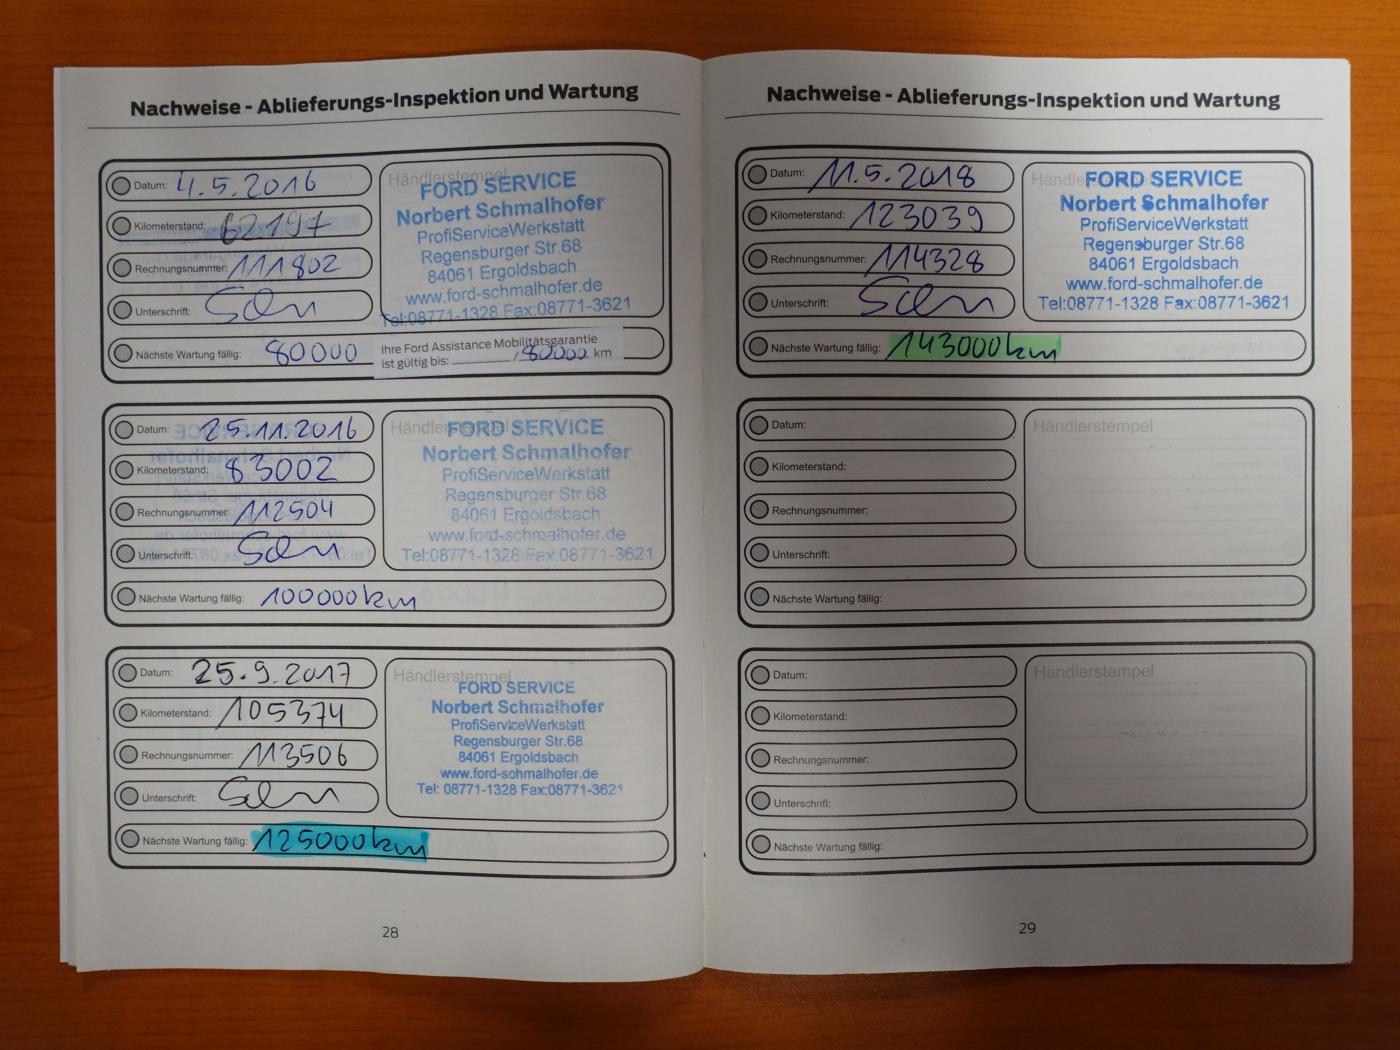 Nachweise - Ablieferungs-Inspektion und Wartung
Datum: 4.5.2016
Kilometerstand: 62197
Rechnungsnummer: 111802
Unterschrift:
Nächste Wartung fällig: 80000
Händlerstempel
FORD SERVICE
Norbert Schmalhofer
ProfiServiceWerkstatt
Regensburger Str.68
84061 Ergoldsbach
www.ford-schmalhofer.de
Tel:08771-1328 Fax:08771-3621
Ihre Ford Assistance Mobilitätsgarantie
ist gültig bis: ________ /80000 km
Datum: 25.11.2016
Kilometerstand: 83002
Rechnungsnummer: 112504
Unterschrift:
Nächste Wartung fällig: 100000km
Händlerstempel
FORD SERVICE
Norbert Schmalhofer
ProfiServiceWerkstatt
Regensburger Str.68
84061 Ergoldsbach
www.ford-schmalhofer.de
Tel:08771-1328 Fax:08771-3621
Datum: 25.9.2017
Kilometerstand: 105374
Rechnungsnummer: 113506
Unterschrift:
Nächste Wartung fällig: 125000km
Händlerstempel
FORD SERVICE
Norbert Schmalhofer
ProfiServiceWerkstatt
Regensburger Str.68
84061 Ergoldsbach
www.ford-schmalhofer.de
Tel: 08771-1328 Fax:08771-3621
28
Nachweise - Ablieferungs-Inspektion und Wartung
Datum: 11.5.2018
Kilometerstand: 123039
Rechnungsnummer: 114328
Unterschrift:
Nächste Wartung fällig: 143000km
Händlerstempel
FORD SERVICE
Norbert Schmalhofer
ProfiServiceWerkstatt
Regensburger Str.68
84061 Ergoldsbach
www.ford-schmalhofer.de
Tel:08771-1328 Fax:08771-3621
Datum:
Kilometerstand:
Rechnungsnummer:
Unterschrift:
Nächste Wartung fällig:
Händlerstempel
Datum:
Kilometerstand:
Rechnungsnummer:
Unterschrift:
Nächste Wartung fällig:
Händlerstempel
29